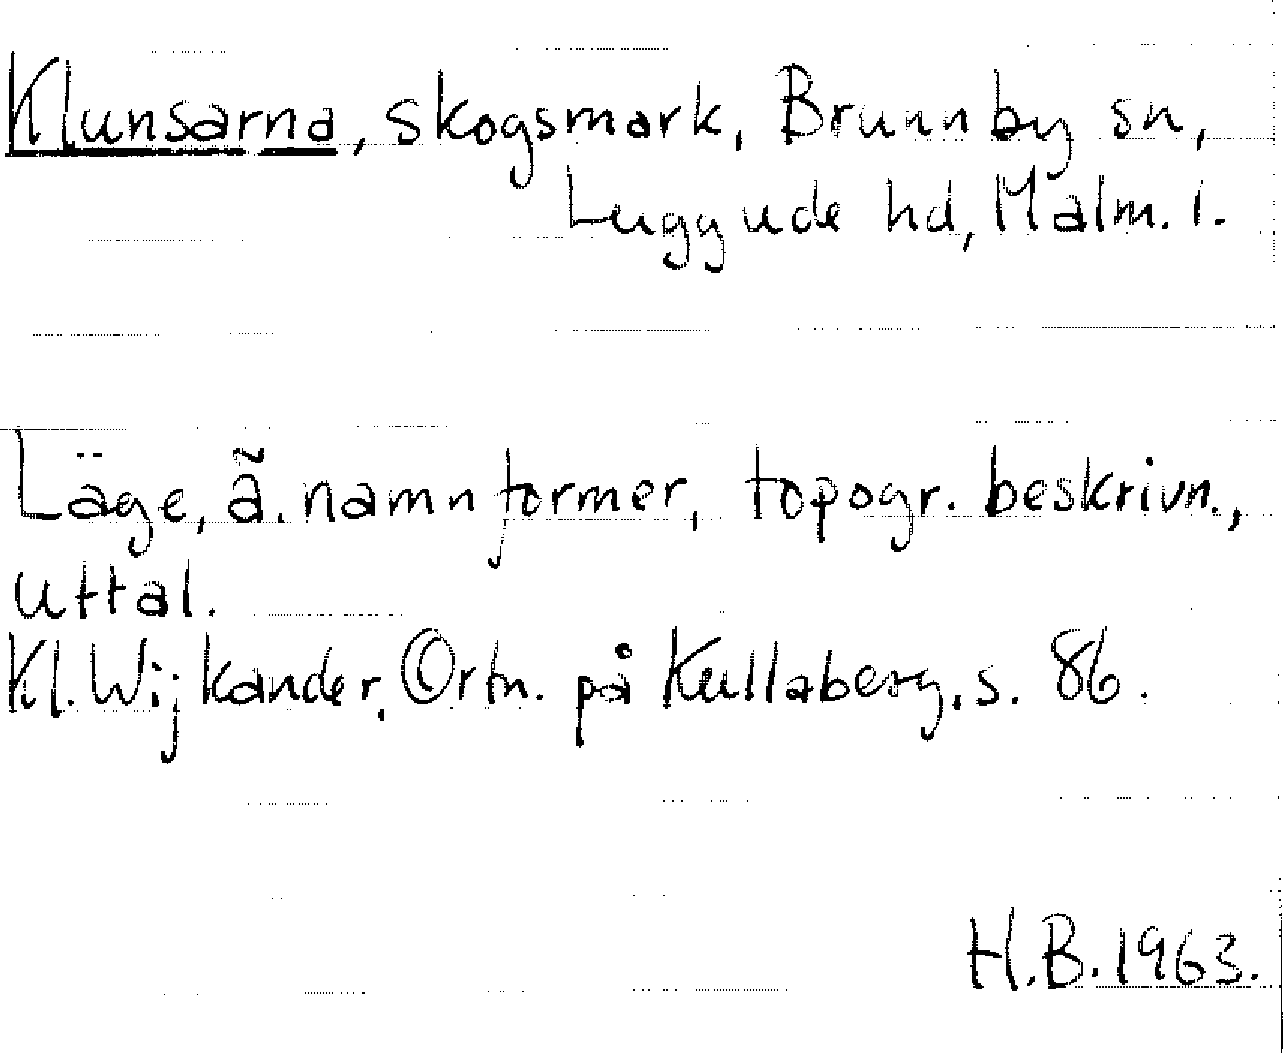 Klunsarna, skogsmark, Brunnby sn,
Luggude hd, Malm. l.
Läge, ä. namnformer, topogr. beskrivn.,
uttal.
Kl. Wijkander, Ortn. på Kullaberg, s. 86.
H.B. 1963.